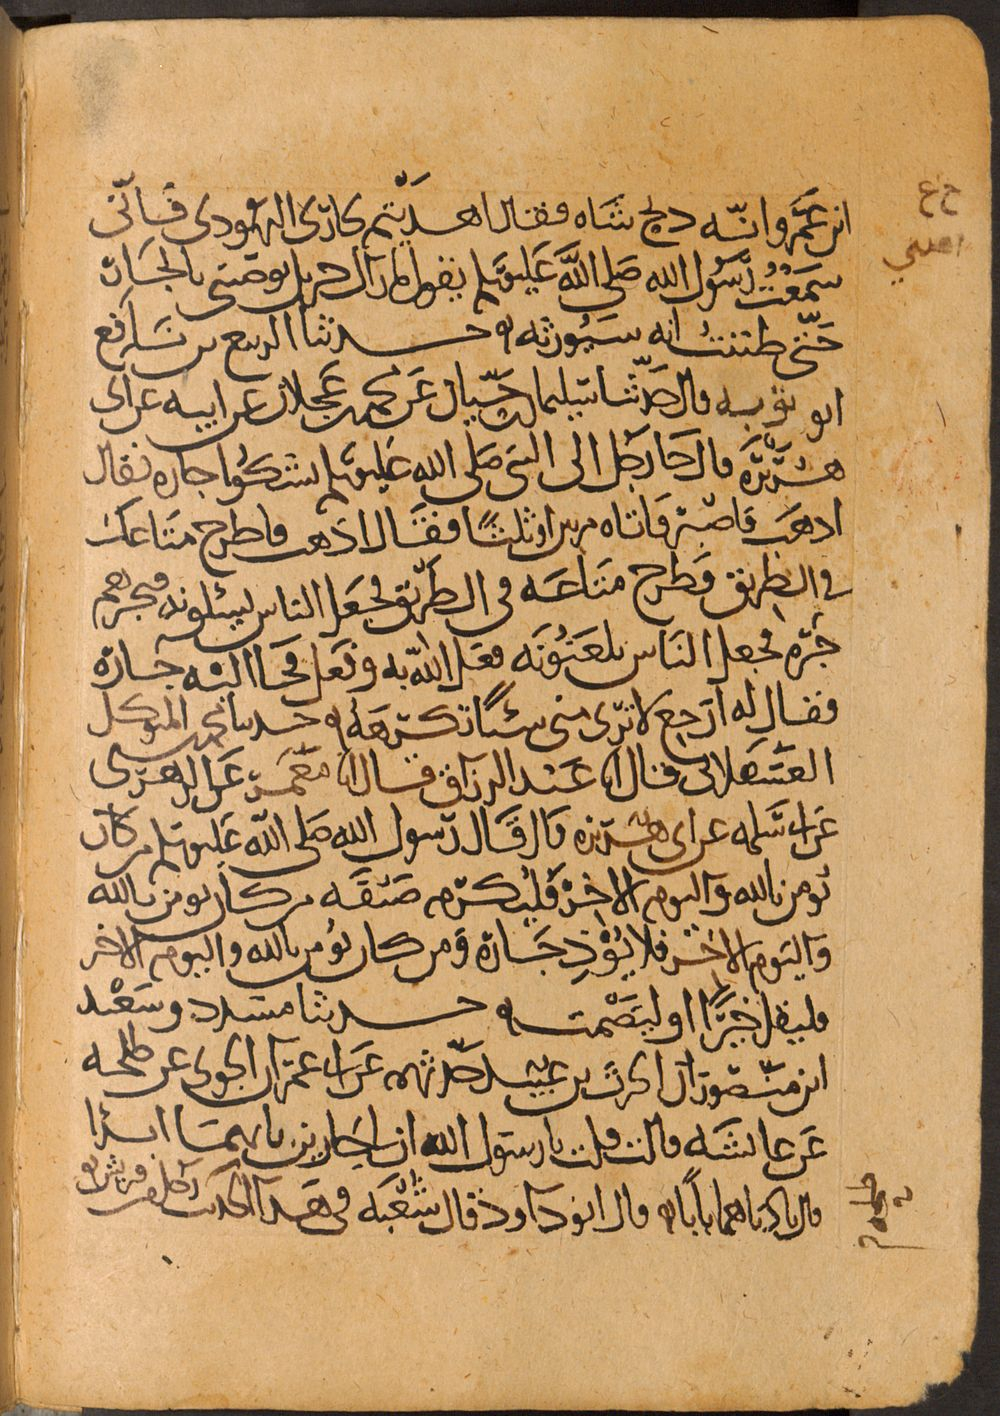 ابن عمرو انه ذبح شاة فقال اهديتم لجارى اليهودى فانى
سمعت رسول الله صلى الله عليه وسلم يقول ما زال جبريل يوصينى بالجار
حتى ظننت انه سيورثه ه حدثنا الربيع بن نافع
ابو توبه قال حدثنا سليمان بن حيان عن محمد بن عجلان عن ابيه عن ابى
هريرة قال جا رجل الى النبى صلى الله عليه وسلم يشكوا جاره فقال
اذهب فاصبر فاتاه مرتين او ثلثا فقال اذهب فاطرح متاعك
فى الطريق فطرح متاعه فى الطريق فجعل الناس يسئلونه فيخبرهم
خبره فجعل الناس يلعنونه فعل الله به وفعل فجا اليه جاره
فقال له ارجع لا ترى منى شيئا تكرهه ه حدثنا محمد بن المتوكل
العسقلانى قال انا عبد الرزاق قال انا معمر عن الزهرى
عن ابى سلمه عن ابى هريرة قال قال رسول الله صلى الله عليه وسلم من كان
يومن بالله واليوم الاخر فليكرم ضيفه من كان يومن بالله
واليوم الاخر فلا يؤذ جاره ومن كان يؤمن بالله واليوم الاخر
فليقل خيرا او ليصمت ه حدثنا مسدد وسعيد
ابن منصور ان الحرث بن عبيد حدثهم عن ابى عمران الجونى عن طلحه
عن عائشه قالت قلت يا رسول الله ان لى جارين بايهما ابدا
قال بادناهما بابا ه قال ابو داود قال شعبه فى هذا الحديث رجل من قريش